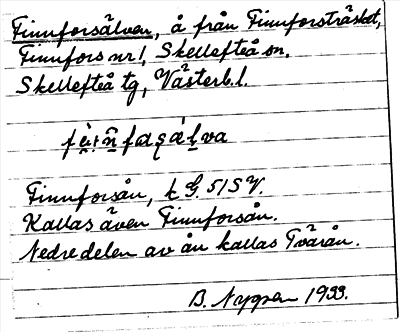 Finnforsälven, å från Finnforsträsket,
Finnfors nr 1, Skellefteå sn.
Skellefteå tg, Västerb. l.
Finnforsån, t G. 51 SV.
Kallas även Finnforsån.
Nedre delen av ån kallas Tvärån.
B. 1933.